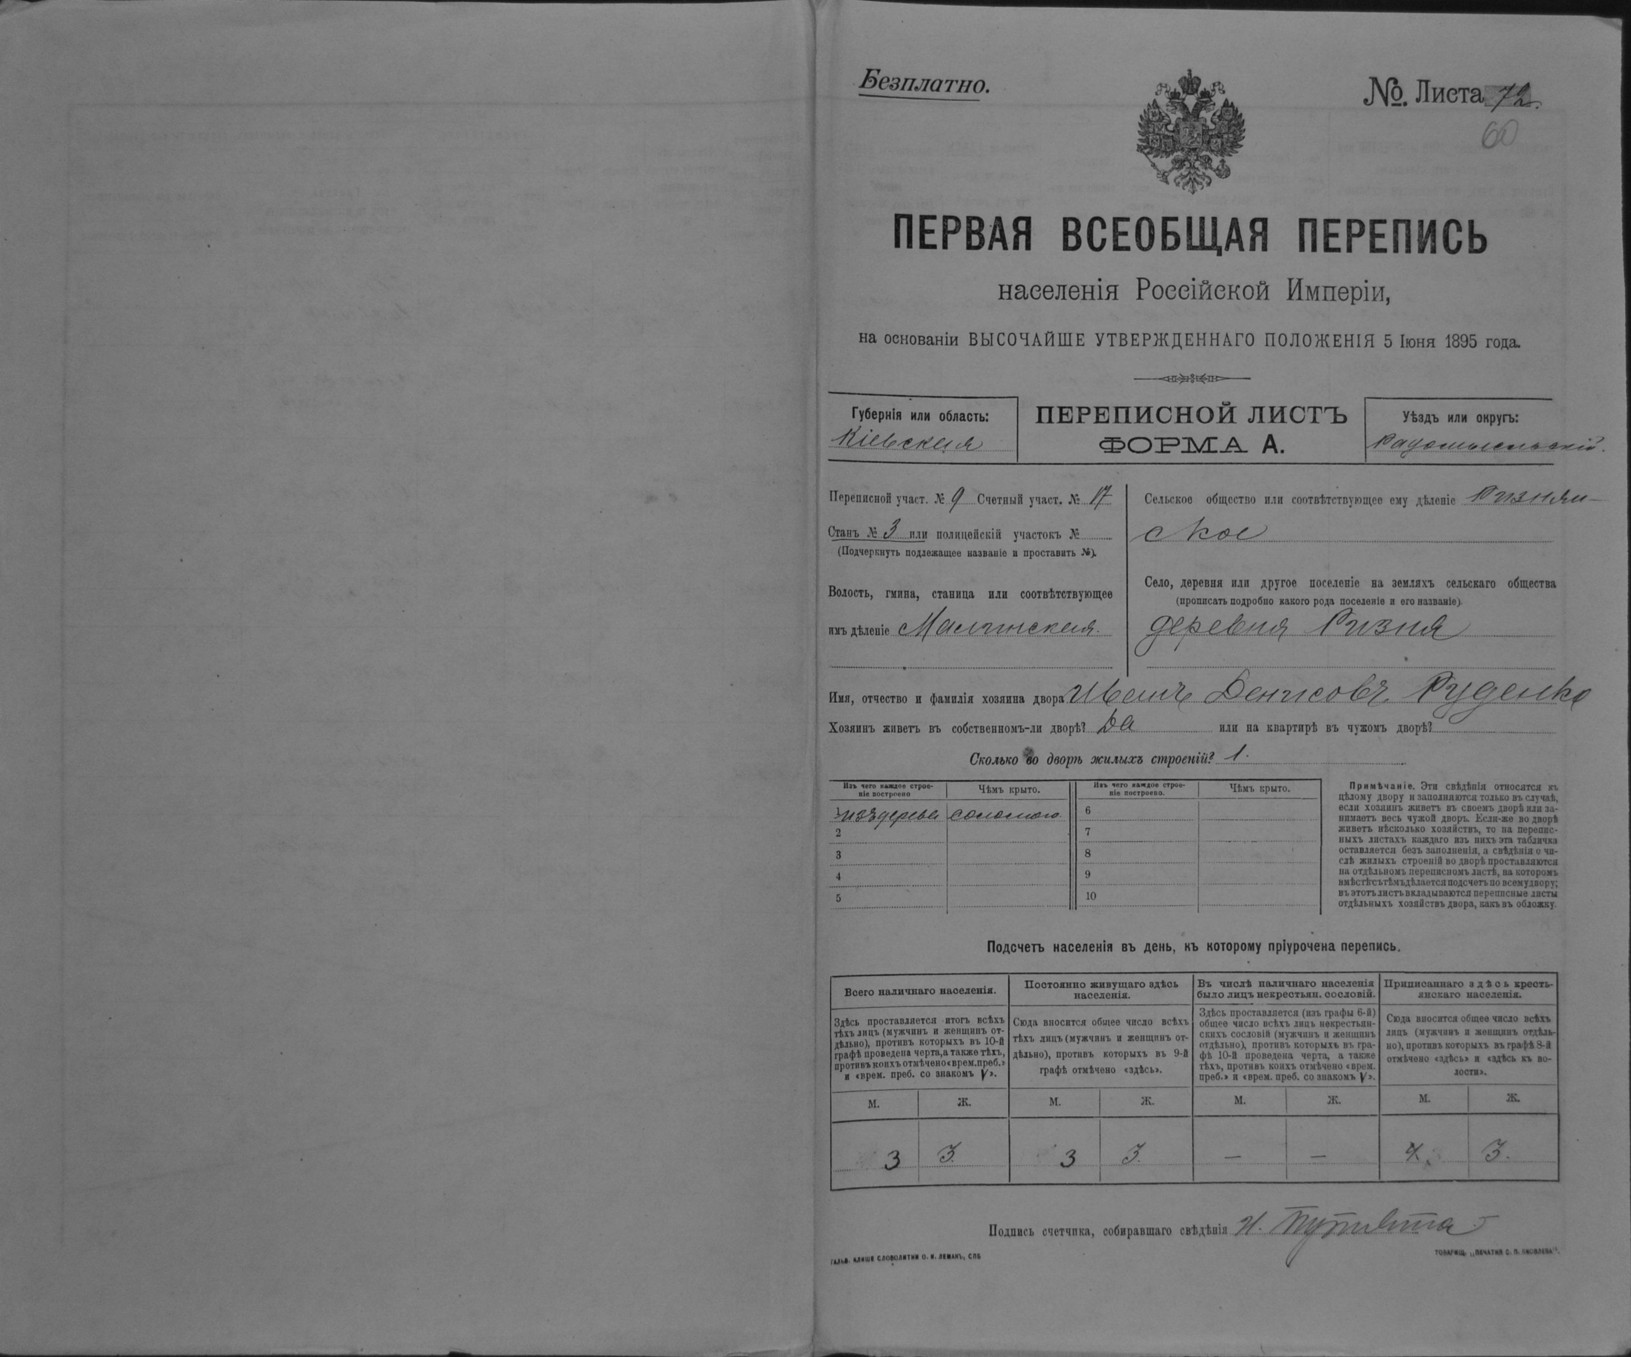 Безплатно.
№ Листа 72.
60
ПЕРВАЯ ВСЕОБЩАЯ ПЕРЕПИСЬ
населенія Россійской Имперіи,
на основаніи ВЫСОЧАЙШЕ УТВЕРЖДЕННАГО ПОЛОЖЕНІЯ 5 Іюня 1895 года.
Губернія или область:
Кіевская
ПЕРЕПИСНОЙ ЛИСТЪ
ФОРМА А.
Уѣздъ или округъ:
Радомысльскій.
Переписной участ. № 9 Счетный участ. № 17
Станъ № 3 или полицейскій участокъ №
(Подчеркнуть подлежащее названіе и проставить №).
Волость, гмина, станица или соотвѣтствующее
имъ дѣленіе Малинская.
Сельское общество или соотвѣтствующее ему дѣленіе Ризнян-
ское
Село, деревня или другое поселеніе на земляхъ сельскаго общества
(прописать подробно какого рода поселеніе и его названіе).
деревня Ризня
Имя, отчество и фамилія хозяина двора Иванъ Денисовъ Руденко
Хозяинъ живетъ въ собственномъ-ли дворѣ? Да или на квартирѣ въ чужомъ дворѣ?
Сколько во дворѣ жилыхъ строеній? 1.
Изъ чего каждое строе-
ніе построено
Чѣмъ крыто.
Изъ чего каждое строе-
ніе построено.
Чѣмъ крыто.
1 изъ дерева соломою 6
2 7
3 8
4 9
5 10
Примѣчаніе. Эти свѣдѣнія относятся къ
цѣлому двору и заполняются только въ случаѣ,
если хозяинъ живетъ въ своемъ дворѣ или за-
нимаетъ весь чужой дворъ. Если-же во дворѣ
живетъ нѣсколько хозяйствъ, то на перепис-
ныхъ листахъ каждаго изъ нихъ эта табличка
оставляется безъ заполненія, а свѣдѣнія о чи-
слѣ жилыхъ строеній во дворѣ проставляются
на отдѣльномъ переписномъ листѣ, на которомъ
вмѣстѣ съ тѣмъ дѣлается подсчетъ по всему двору;
въ этотъ листъ вкладываются переписные листы
отдѣльныхъ хозяйствъ двора, какъ въ обложку.
Подсчетъ населенія въ день, къ которому пріурочена перепись.
Всего наличнаго населенія.
Здѣсь проставляется итогъ всѣхъ
тѣхъ лицъ (мужчинъ и женщинъ от-
дѣльно), противъ которыхъ въ 10-й
графѣ проведена черта, а также тѣхъ,
противъ коихъ отмѣчено «врем. преб.»
и «врем. преб. со знакомъ V».
Постоянно живущаго здѣсь
населенія.
Сюда вносится общее число всѣхъ
тѣхъ лицъ (мужчинъ и женщинъ от-
дѣльно), противъ которыхъ въ 9-й
графѣ отмѣчено «здѣсь».
Въ числѣ наличнаго населенія
было лицъ некрестьян. сословій.
Здѣсь проставляется (изъ графы 6-й)
общее число всѣхъ лицъ некрестьян-
скихъ сословій (мужчинъ и женщинъ
отдѣльно), противъ которыхъ въ гра-
фѣ 10-й проведена черта, а также
тѣхъ, противъ коихъ отмѣчено «врем.
преб.» и «врем. преб. со знакомъ V».
Приписаннаго здѣсь кресть-
янскаго населенія.
Сюда вносится общее число всѣхъ
лицъ (мужчинъ и женщинъ отдѣль-
но), противъ которыхъ въ графѣ 8-й
отмѣчено «здѣсь» и «здѣсь въ во-
лости».
М. Ж. М. Ж. М. Ж. М. Ж.
3 3. 3 3. — — 4. 3.
Подпись счетчика, собиравшаго свѣдѣнія И. Путята
ГАЛЬВ. КЛИШЕ СЛОВОЛИТНИ О. И. ЛЕМАНЪ, СПБ
ТОВАРИЩ. „ПЕЧАТНЯ С. П. ЯКОВЛЕВА“.